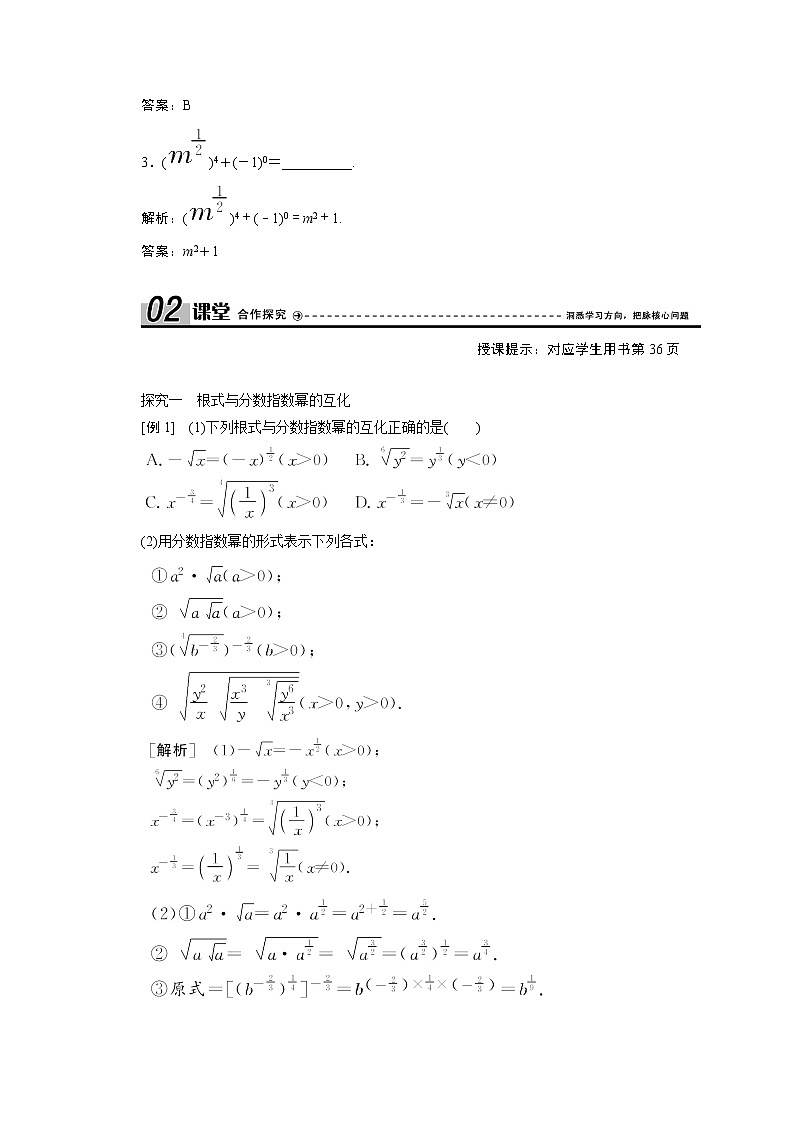 答案：B
3．(m^{1/2})⁴＋(－1)⁰＝__________.
解析：(m^{1/2})⁴＋(－1)⁰＝m²＋1.
答案：m²＋1
02 课堂 合作探究 洞悉学习方向，把脉核心问题
授课提示：对应学生用书第 36 页
探究一　根式与分数指数幂的互化
[例 1]　(1)下列根式与分数指数幂的互化正确的是(　　)
A. －√x＝(－x)^{1/2}(x＞0)　B. ⁶√(y²)＝y^{1/3}(y＜0)
C. x^{－3/4}＝⁴√((1/x)³)(x＞0)　D. x^{－1/3}＝－³√x(x≠0)
(2)用分数指数幂的形式表示下列各式：
①a²·√a(a＞0)；
② √(a√a)(a＞0)；
③(⁴√(b^{－2/3}))^{－2/3}(b＞0)；
④ √(y²/x √(x³/y ³√(y⁶/x³)))(x＞0，y＞0).
[解析]　(1)－√x＝－x^{1/2}(x＞0)；
⁶√(y²)＝(y²)^{1/6}＝－y^{1/3}(y＜0)；
x^{－3/4}＝(x^{－3})^{1/4}＝⁴√((1/x)³)(x＞0)；
x^{－1/3}＝(1/x)^{1/3}＝³√(1/x)(x≠0).
(2)①a²·√a＝a²·a^{1/2}＝a^{2＋1/2}＝a^{5/2}.
② √(a√a)＝√(a·a^{1/2})＝√(a^{3/2})＝(a^{3/2})^{1/2}＝a^{3/4}.
③原式＝[(b^{－2/3})^{1/4}]^{－2/3}＝b^{(－2/3)×1/4×(－2/3)}＝b^{1/9}.